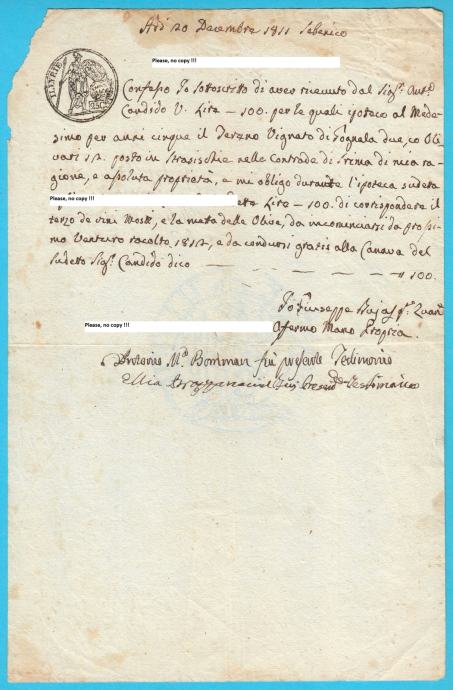 Adi 20 Decembre 1811 Sebenico
Please, no copy !!!
ILLYRIE
25 C
Confesso Io sotoscrito di aver riceuuto dal Sigr. Antº
Candido V. Lire – 100. per le quali ipoteco al Mede-
simo per anni cinque il Terzno Vignato di due, co Oli-
vari 12. posto in nelle Contrade di di mia ra-
gione, e asoluta proprietà, e mi obligo durante l'ipoteca sudeta
Please, no copy !!!
Lire – 100. di corrispondere il
terzo de vini Mosti, e la metà delle Olive, da incominciarsi da prosi-
mo Venturo racolto 1812, e da condursi gratis alla Canava del
sudetto Sigr. Candido dico — — — — — " 100.
Io Giuseppe
Please, no copy !!!
Afermo Mano Propria.
Antonio Mª Bomman fui presente Testimonio
Ellia fui Presente Testimonio